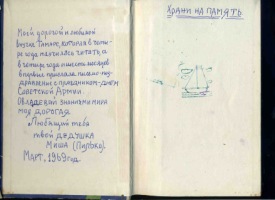 Моей дорогой и любимой
внучке Танюге, которая в четы-
ре года научилась читать, а
в четыре года и шесть месяцев
впервые прислала письмо позд-
равление с праздником-днём
Советской Армии.
Овладевай знаниями мира
моя дорогая
Любящий тебя
твой дедушка
Миша (Пилько).
Март, 1969 год.
Храни на память